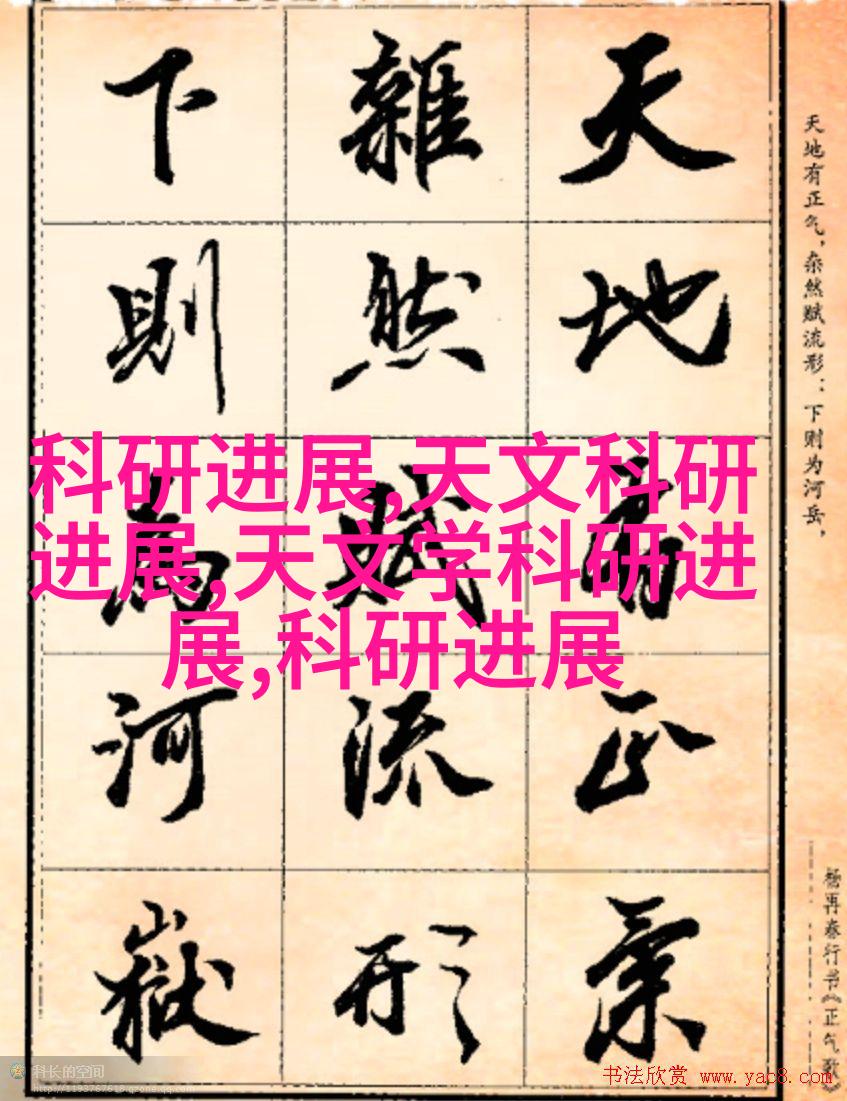 天地有正氣
雜然賦流形
下則為河嶽
天地有正气，杂然赋流形：下则为河岳，
杨再春行书《正气歌》
科研进展,天文科研
进展,天文学科研进
展,科研进展
科长的空间
http://1193767618.qzone.qq.com
书法欣赏 www.yac8.com